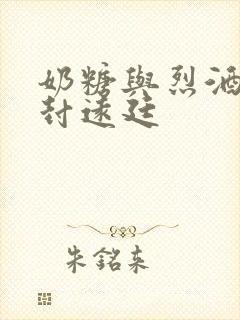 奶糖與烈酒
封遠廷
朱銘來